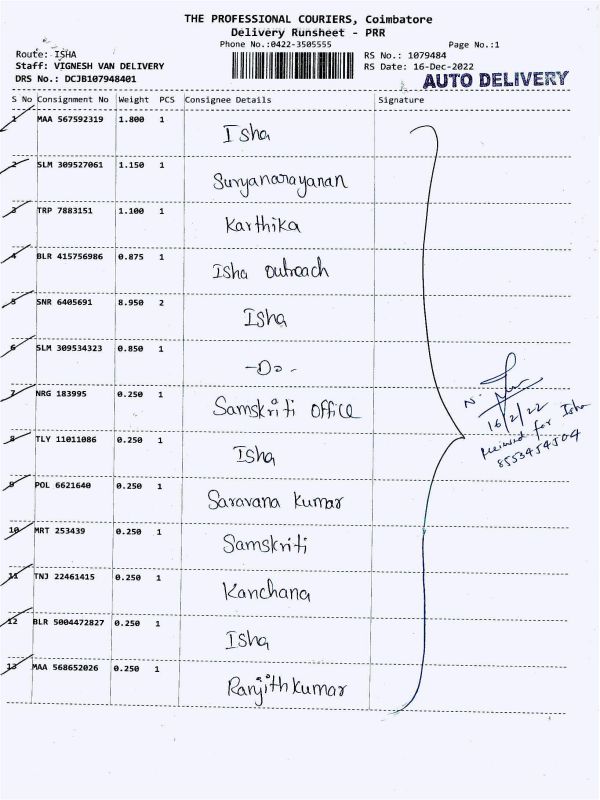 THE PROFESSIONAL COURIERS, Coimbatore
Delivery Runsheet - PRR
Phone No.:0422-3505555 Page No.:1
Route: ISHA RS No.: 1079484
Staff: VIGNESH VAN DELIVERY RS Date: 16-Dec-2022
DRS No.: DCJB107948401 AUTO DELIVERY
S No Consignment No Weight PCS Consignee Details Signature
1 MAA 567592319 1.800 1 Isha
2 SLM 309527061 1.150 1 Suryanarayanan
3 TRP 7883151 1.100 1 Karthika
4 BLR 415756986 0.875 1 Isha outreach
5 SNR 6405691 8.950 2 Isha
6 SLM 309534323 0.850 1 -Do-
7 NRG 183995 0.250 1 Samskriti office
8 TLY 11011086 0.250 1 Isha
9 POL 6621640 0.250 1 Saravana Kumar
10 MRT 253439 0.250 1 Samskriti
11 TNJ 22461415 0.250 1 Kanchana
12 BLR 5004472827 0.250 1 Isha
13 MAA 568652026 0.250 1 Ranjithkumar
N.
16/2/22
Received for Isha
8553454504